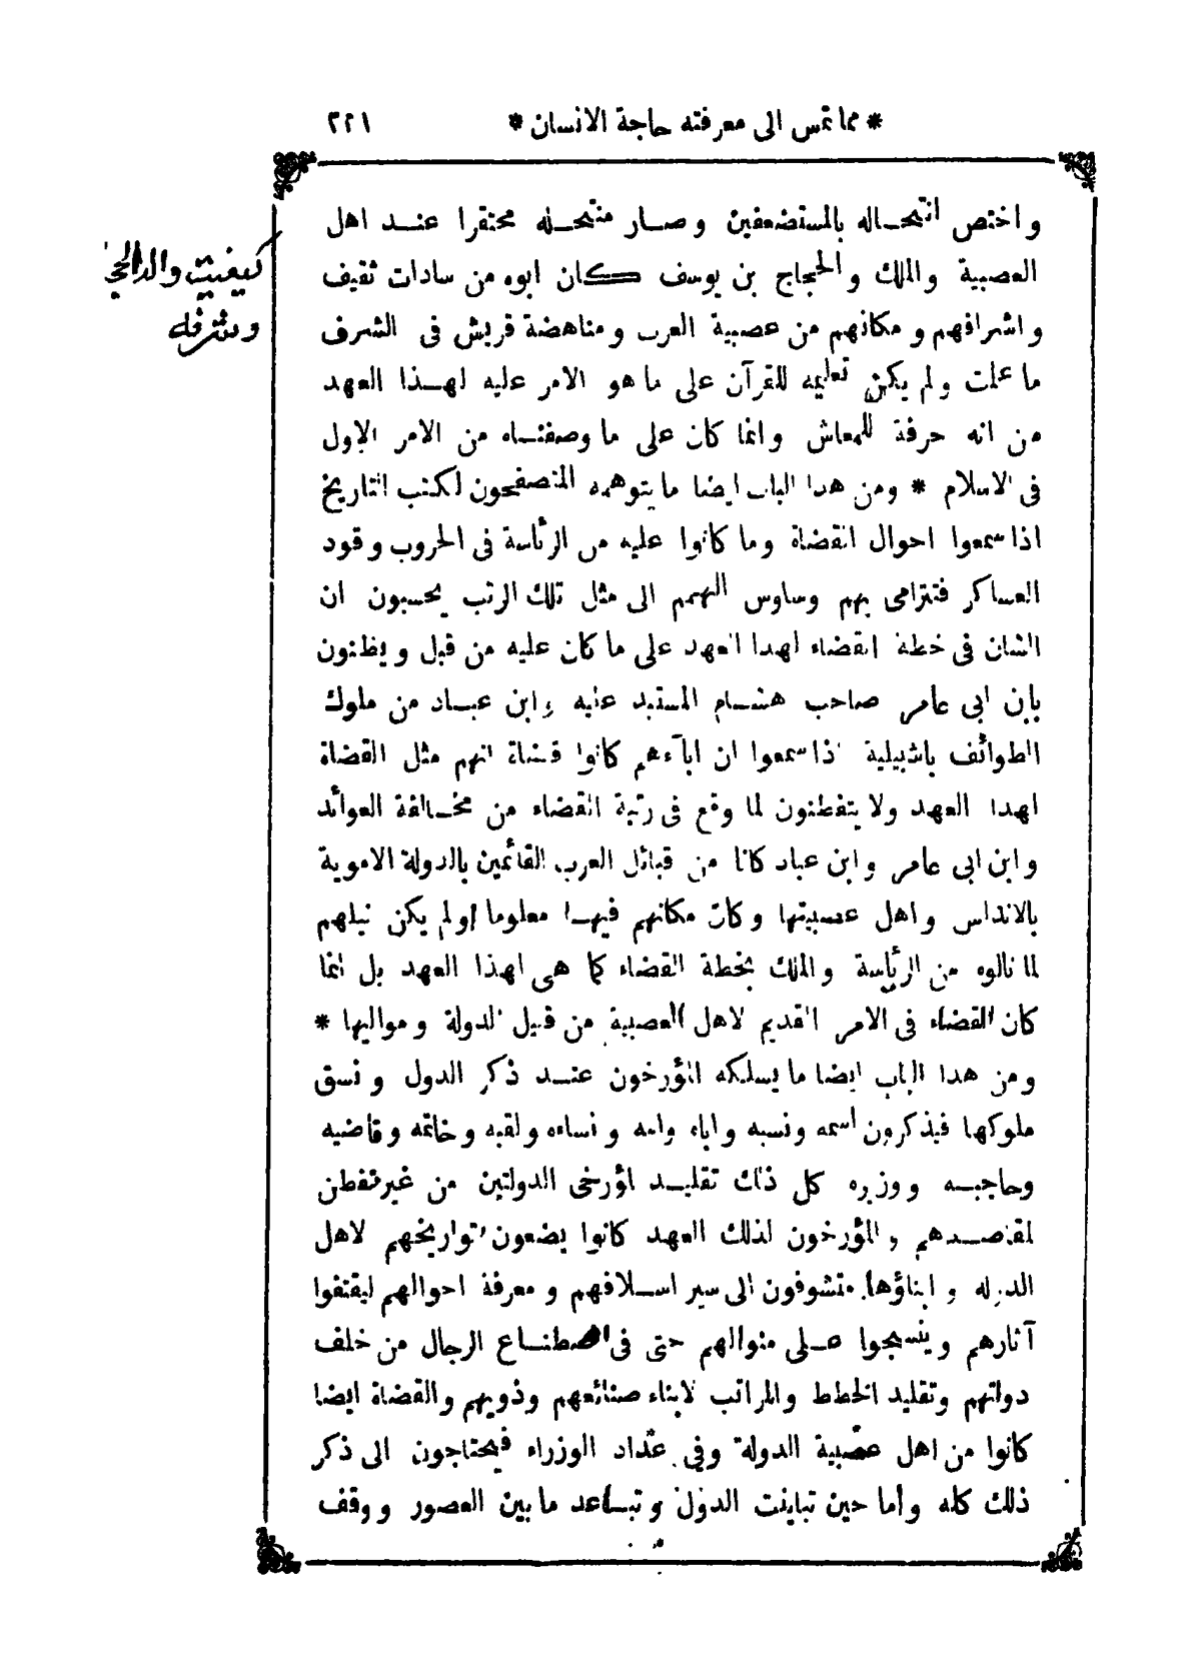 * مما تمس الى معرفته حاجة الانسان * ٢٢١
واختص انتحاله بالمستضعفين وصار منتحله محتقرا عند اهل
العصبية والملك والحجاج بن يوسف كان ابوه من سادات ثقيف
واشرافهم ومكانهم من عصبية العرب ومناهضة قريش فى الشرف
ما علمت ولم يكن تعليمه للقرآن على ما هو الامر عليه لهذا العهد
من انه حرفة للمعاش وانما كان على ما وصفناه من الامر الاول
فى الاسلام * ومن هذا الباب ايضا ما يتوهمه المتصفحون لكتب التاريخ
اذا سمعوا احوال القضاة وما كانوا عليه من الرئاسة فى الحروب وقود
العساكر فتترامى بهم وساوس الهمم الى مثل تلك الرتب يحسبون ان
الشان فى خطة القضاء لهذا العهد على ما كان عليه من قبل ويظنون
بابن ابى عامر صاحب هشام المستبد عليه وابن عباد من ملوك
الطوائف باشبيلية اذا سمعوا ان اباءهم كانوا قضاة انهم مثل القضاة
لهذا العهد ولا يتفطنون لما وقع فى رتبة القضاء من مخالفة العوائد
وابن ابى عامر وابن عباد كانا من قبائل العرب القائمين بالدولة الاموية
بالاندلس واهل عصبيتها وكان مكانهم فيها معلوما ولم يكن نيلهم
لما نالوه من الرئاسة والملك بخطة القضاء كما هى لهذا العهد بل انما
كان القضاء فى الامر القديم لاهل العصبية من قبيل الدولة ومواليها *
ومن هذا الباب ايضا ما يسلكه المؤرخون عند ذكر الدول ونسق
ملوكها فيذكرون اسمه ونسبه واباه وامه ونساءه ولقبه وخاتمه وقاضيه
وحاجبه ووزيره كل ذلك تقليد لمؤرخى الدولتين من غير تفطن
لمقاصدهم والمؤرخون لذلك العهد كانوا يضعون تواريخهم لاهل
الدوله وابناؤها متشوفون الى سير اسلافهم ومعرفة احوالهم ليقتفوا
آثارهم وينسجوا على منوالهم حتى فى اصطناع الرجال من خلف
دولتهم وتقليد الخطط والمراتب لابناء صنائعهم وذويهم والقضاة ايضا
كانوا من اهل عصبية الدولة وفى عداد الوزراء فيحتاجون الى ذكر
ذلك كله واما حين تباينت الدول وتباعد ما بين العصور ووقف